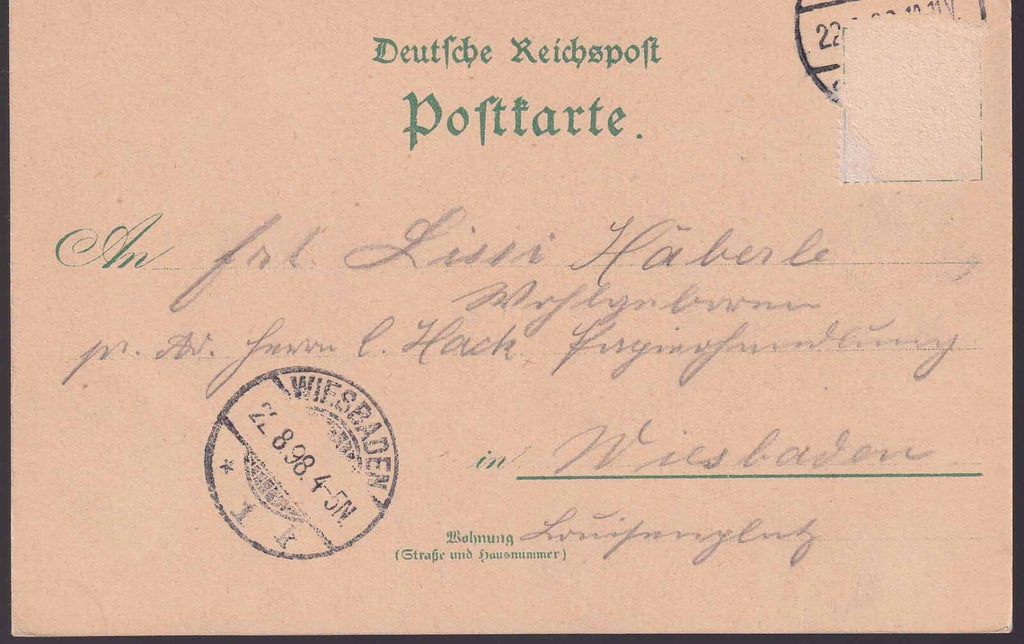 22
Deutsche Reichspost
Postkarte.
An Frl. Lissi Häberle
Wohlgeboren
pr. Ad. Herrn C. Hack, Papierhandlung
WIESBADEN
22.8.98.4-5N.
* 1 1
in Wiesbaden
Wohnung Louisenplatz
(Straße und Hausnummer)